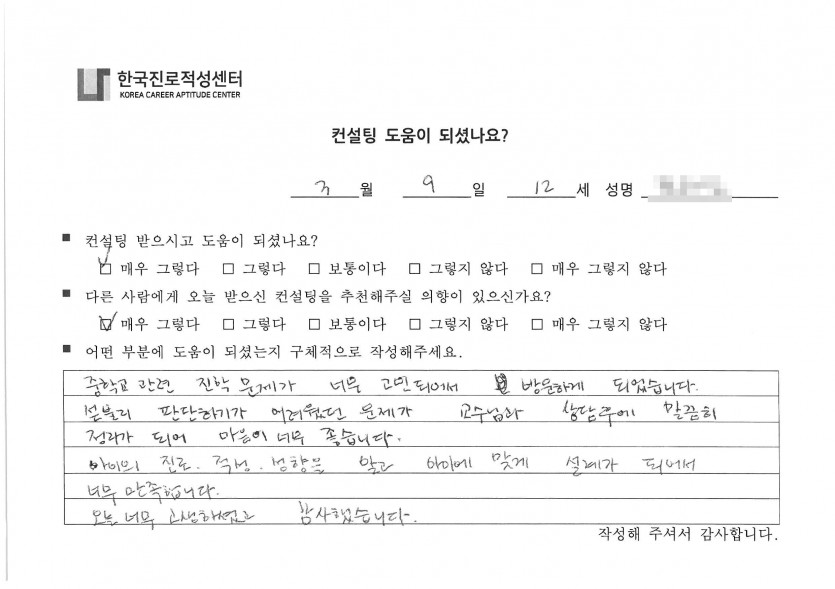 한국진로적성센터
KOREA CAREER APTITUDE CENTER
컨설팅 도움이 되셨나요?
3 월 9 일 12 세 성명
■ 컨설팅 받으시고 도움이 되셨나요?
☑ 매우 그렇다 □ 그렇다 □ 보통이다 □ 그렇지 않다 □ 매우 그렇지 않다
■ 다른 사람에게 오늘 받으신 컨설팅을 추천해주실 의향이 있으신가요?
☑ 매우 그렇다 □ 그렇다 □ 보통이다 □ 그렇지 않다 □ 매우 그렇지 않다
■ 어떤 부분에 도움이 되셨는지 구체적으로 작성해주세요.
중학교 관련 진학 문제가 너무 고민되어서 방문하게 되었습니다.
섣불리 판단하기가 어려웠던 문제가 교수님과 상담후에 말끔히
정리가 되어 마음이 너무 좋습니다.
아이의 진로. 적성. 성향을 알고 아이에 맞게 설계가 되어서
너무 만족합니다.
오늘 너무 고생하셨고 감사했습니다.
작성해 주셔서 감사합니다.